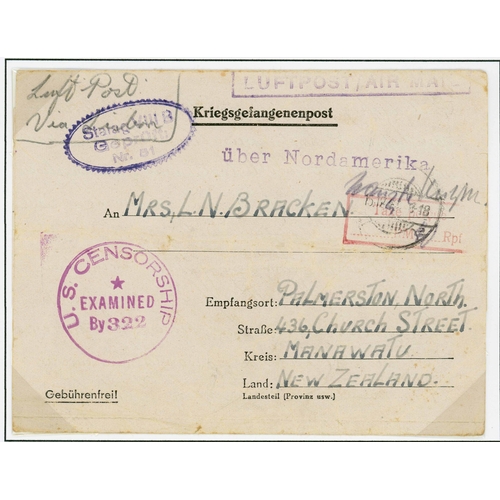 Luft Post
Via
LUFTPOST/AIR MAIL
Kriegsgefangenenpost
Stalag VIII B
Geprüft
Nr. 81
über Nordamerika
An MRS, L. N. BRACKEN.
Rpf.
U.S. CENSORSHIP
EXAMINED
By 322
Empfangsort: PALMERSTON, NORTH.
Straße: 436, CHURCH STREET.
Kreis: MANAWATU
Land: NEW ZEALAND.
Landesteil (Provinz usw.)
Gebührenfrei!